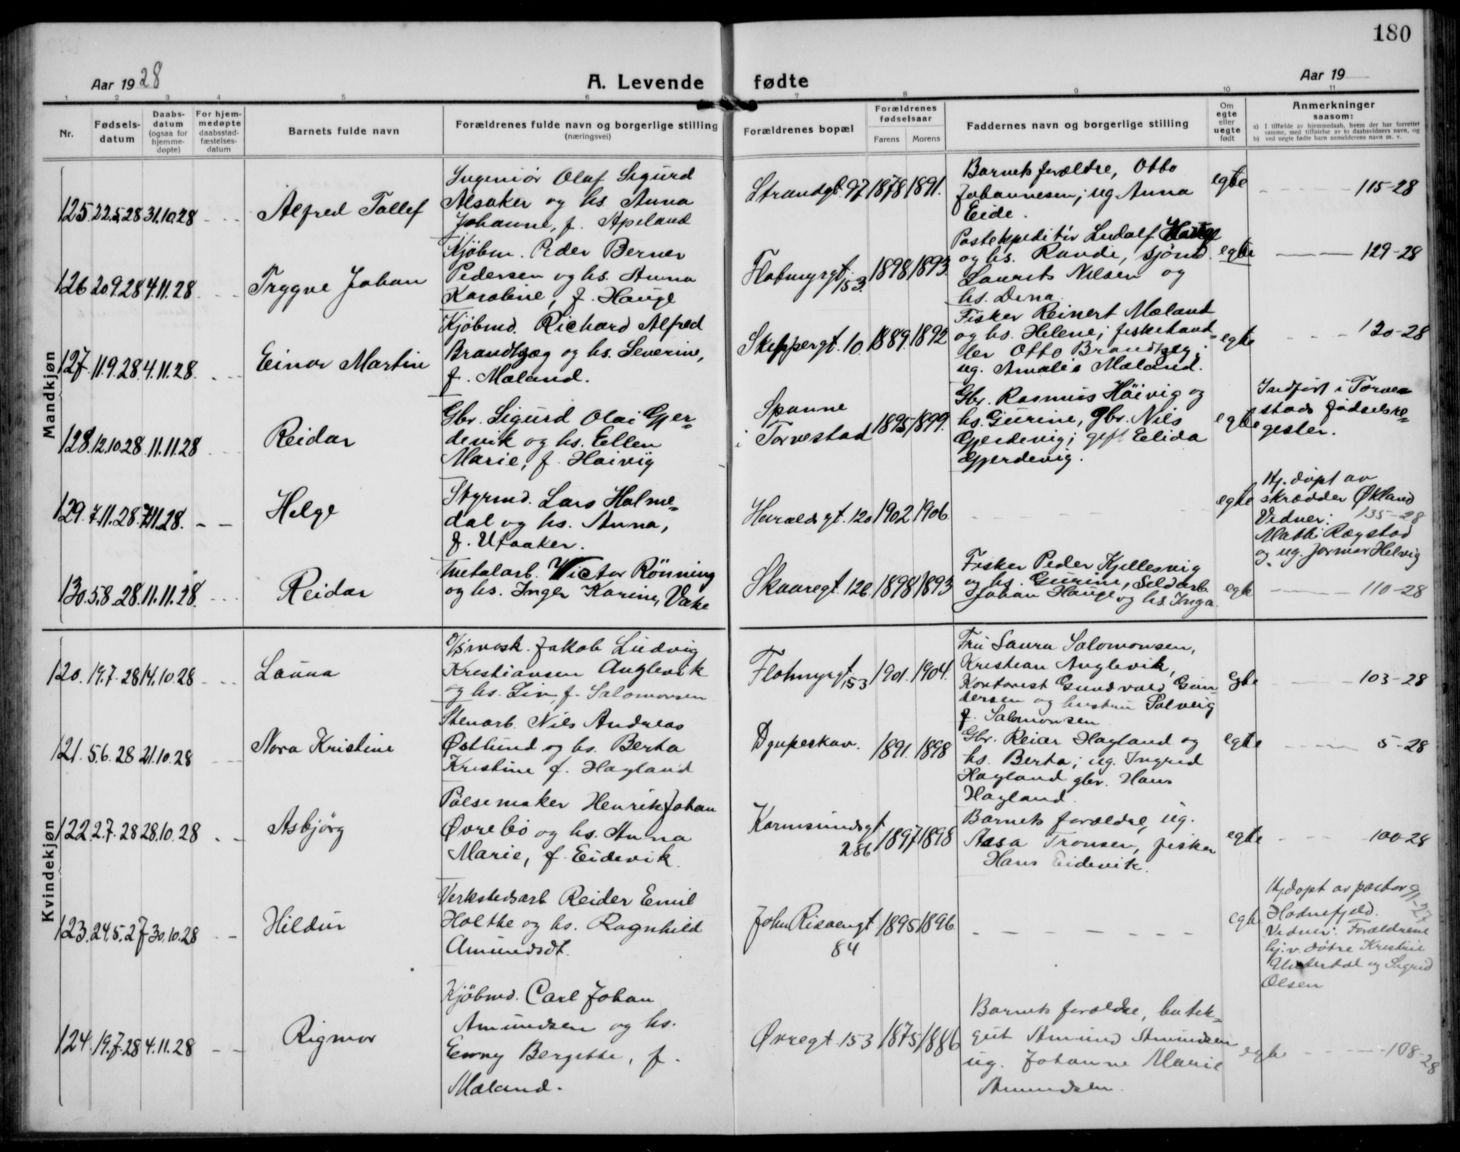 180
Aar 1928
A. Levende fødte
Aar 19
1 2 3 4 5 6 7 8 9 10 11
Nr.
Fødsels-
datum
Daabs-
datum
(ogsaa for
hjemme-
døpte)
For hjem-
medøpte
daabsstad-
fæstelses-
datum
Barnets fulde navn
Forældrenes fulde navn og borgerlige stilling
(næringsvei)
Forældrenes bopæl
Forældrenes
fødselsaar
Farens Morens
Faddernes navn og borgerlige stilling
Om
egte
eller
uegte
født
Anmerkninger
saasom:
a) I tilfælde av hjemmedaab, hvem der har forrettet
samme, med tilføielse av to daabsvidners navn, og
b) ved uegte fødte barn anmelderens navn m. v.
Mandkjøn
125. 22.5.28 31.10.28 - - -
Alfred Tollef
Ingeniør Olaf Sigurd
Alsaker og hs Anna
Johanne, f. Apeland
Strandgt. 97 1878 1891.
Barnets forældre, Otto
Johannesen; ug Anna
Eide.
egte
115-28
126 20.9.28 4.11.28 - - -
Trygve Johan
Kjøbm. Peder Berner
Pedersen og hs. Anna
Karoline, f. Hauge
Flotmyrgt. 153. 1898 1893
Postekspeditør Ludolf
og hs. Randi,
Laurits Nilsen og
hs. Dina
egte
129-28
127 11.9.28 4.11.28 - - -
Einar Martin
Kjøbmd. Richard Alfred
Brandtzæg og hs. Severine,
f. Mæland.
Skippergt. 10. 1889. 1892
Fisker Reinert Mæland
og hs. Helene; fiskehand-
ler Otto Brandtzæg;
ug. Amalie Mæland.
egte
120-28
128. 12.10.28 11.11.28 - - -
Reidar
Gbr. Sigurd Olai Gjer-
devik og hs. Ellen
Marie, f. Høivig
Spanne
i Torvestad 1895 1899.
Gbr. Rasmus Höivig og
hs. Gurine, gbr. Nils
Gjerdevig; gift Elida
Gjerdevig.
egte
Indført i Torve-
stads fødselsre-
gester.
129. 7.11.28 7.11.28. - -
Helge
Styrmd. Lars Halme-
dal og hs. Anna,
f. Utaaker.
Haraldsgt. 120 1902 1906
- - - - - -
egte
Hj. døpt av
skrædder Økland
Vidner: 135-28
Math. Røgstad
og ug. Jormar Helvig
130. 5.8.28. 11.11.28. - - -
Reidar
Metalarb. Victor Rönning
og hs. Inger Karine, Vake
Skaaregt. 126 1898 1893
Fisker Peder Kjellesvig
og hs. Gurine, Sildarb.
Johan Hauge og hs Inga.
egte
110-28
Kvindekjøn
120. 19.7.28 14.10.28 - - -
Launa
Jakob Ludvig
Kristiansen Anglevik
og hs. Liv f. Salomonsen
Flotmyrgt 153 1901. 1904.
Fru Laura Salomonsen,
Kristian Anglevik,
Kontorist Gundvald Gun-
dersen og hustru Solveig
f. Salomonsen
egte
103-28
121. 5.6.28 21.10.28 - - -
Nora Kristine
Stenarb. Nils Andreas
Østlund og hs. Berta
Kristine f. Hagland
Djupeskar. 1891. 1898
Gbr. Reier Hagland og
hs. Berta; ug. Ingrid
Hagland gbr. Hans
Hagland.
egte
5-28
122 2.7.28 28.10.28 - -
Asbjørg
Pølsemaker Henrik Johan
Øvrebö og hs. Anna
Marie, f. Eidevik.
Karmsundsgt
286 1897 1898
Barnets forældre, ug.
Aasa Tronsen, fisker
Hans Eidevik.
egte
100-28
123. 24.5.27 30.10.28 - -
Hildur
Verkstedsarb Reider Emil
Holthe og hs. Ragnhild
Amundsdt.
John Risøengt
84 1895 1896
- - - - - -
egte
Hj.døpt av pastor 91-27
Hodnefjeld.
Vidner: Forældrene
hj.v. døtre Kristine
og Sigrid
Olsen
124. 19.7.28 4.11.28 - -
Rigmor
Kjöbmd. Carl Johan
Amundsen og hs.
Emmy Bergitte, f.
Mæland.
Øvregt 153 1875 1886
Barnets forældre, butik-
gut Amund Amundsen
ug. Johanne Marie
Amundsen.
egte
108-28